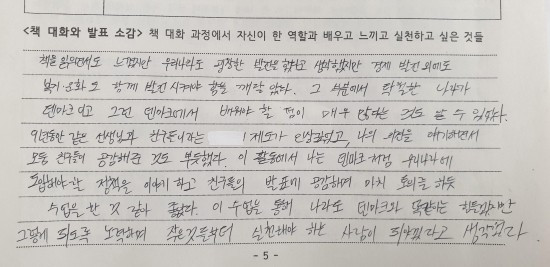 <책 대화와 발표 소감> 책 대화 과정에서 자신이 한 역할과 배우고 느끼고 실천하고 싶은 것들
책을 읽으면서도 느꼈지만 우리나라도 굉장한 발전을 했다고 생각했지만 경제 발전 외에도
복지·문화도 함께 발전시켜야 함을 깨달았다. 그 부분에서 탁월한 나라가
덴마크이고 그런 덴마크에게서 배워야 할 점이 매우 많다는 것도 알 수 있었다.
9년동안 같은 선생님과 친구들이라는 제도가 인상깊었고, 나의 의견을 얘기하면서
모둠 친구들이 공감해준 것도 뿌듯했다. 이 활동에서 나는 덴마크처럼 우리나라에
도입해야 할 정책을 이야기 하고 친구들의 발표에 공감하며 마치 토의를 하듯
수업을 한 것 같아 좋았다. 이 수업을 통해 나라도 덴마크와 똑같이는 힘들겠지만
그렇게 되도록 노력하며 작은것들부터 실천해야 하는 사람이 되야겠다고 생각했다
- 5 -